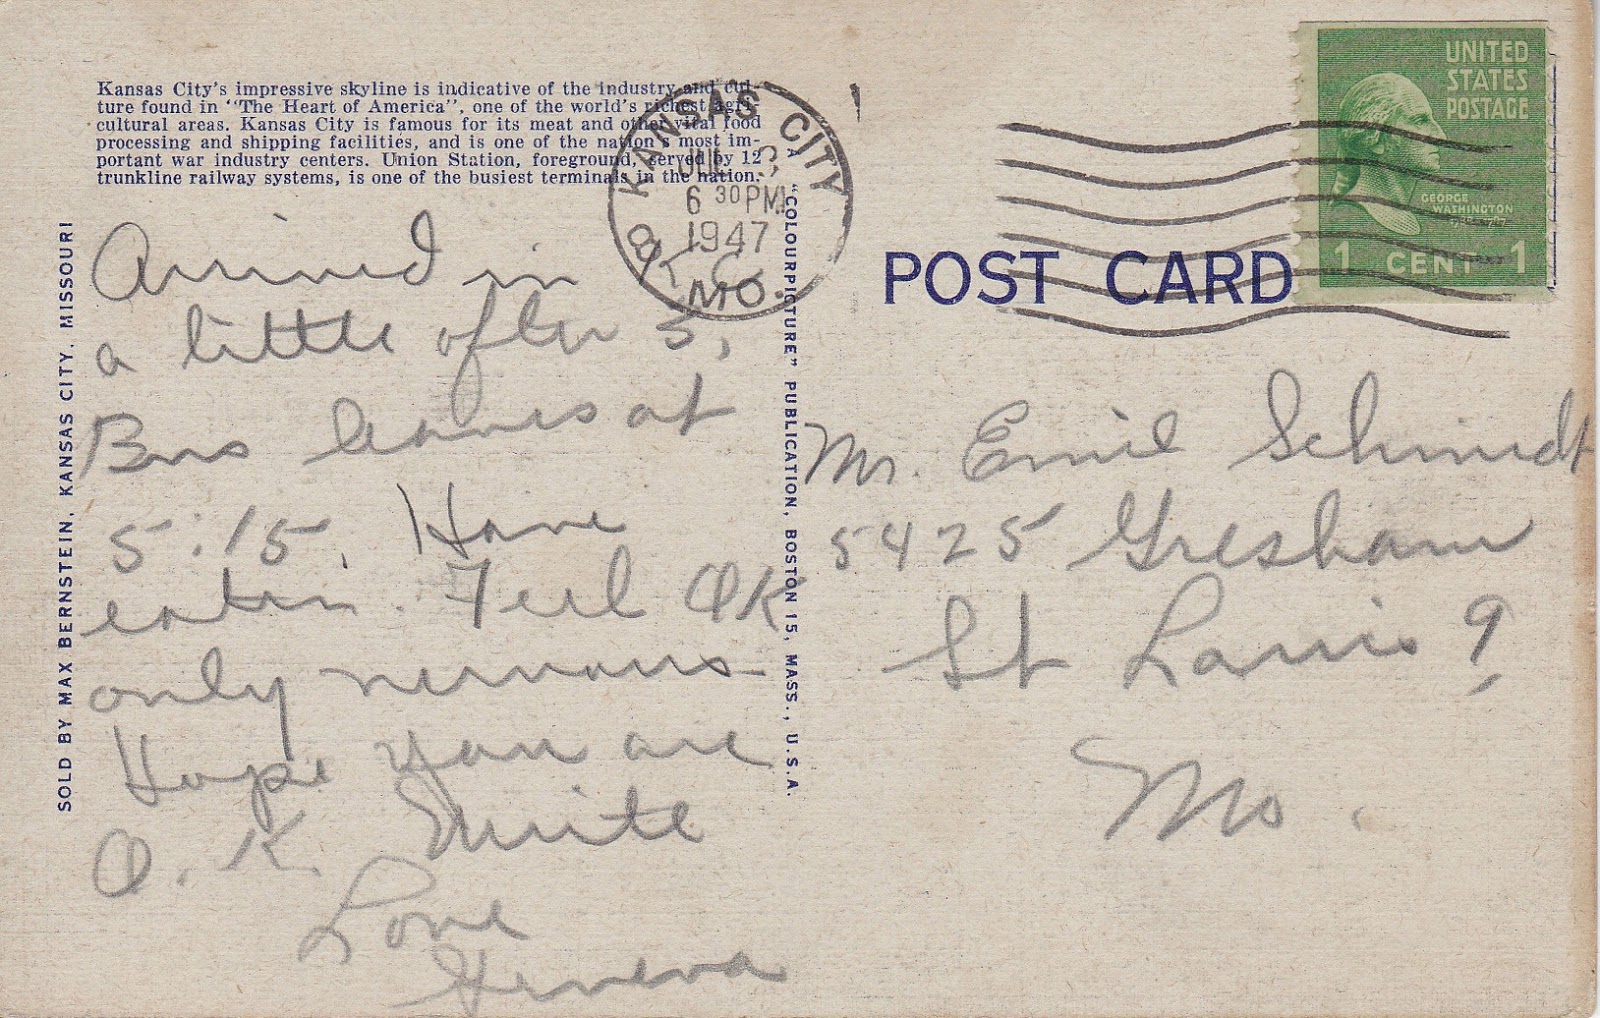 Kansas City's impressive skyline is indicative of the industry and cul-
ture found in "The Heart of America", one of the world's richest agri-
cultural areas. Kansas City is famous for its meat and other vital food
processing and shipping facilities, and is one of the nation's most im-
portant war industry centers. Union Station, foreground, served by 12
trunkline railway systems, is one of the busiest terminals in the nation.
KANSAS CITY
JUL
6 30 PM
1947
MO.
UNITED
STATES
POSTAGE
GEORGE
WASHINGTON
1 CENT 1
POST CARD
SOLD BY MAX BERNSTEIN, KANSAS CITY, MISSOURI
"COLOURPICTURE" PUBLICATION, BOSTON 15, MASS., U.S.A.
Arrived in
a little after 5,
Bus leaves at
5:15. Have
eaten. Feel OK
only nervous
Hope you are
O.K. Write
Love
Geneva
Mr. Emil Schmidt
5425 Gresham
St Louis 9,
Mo.